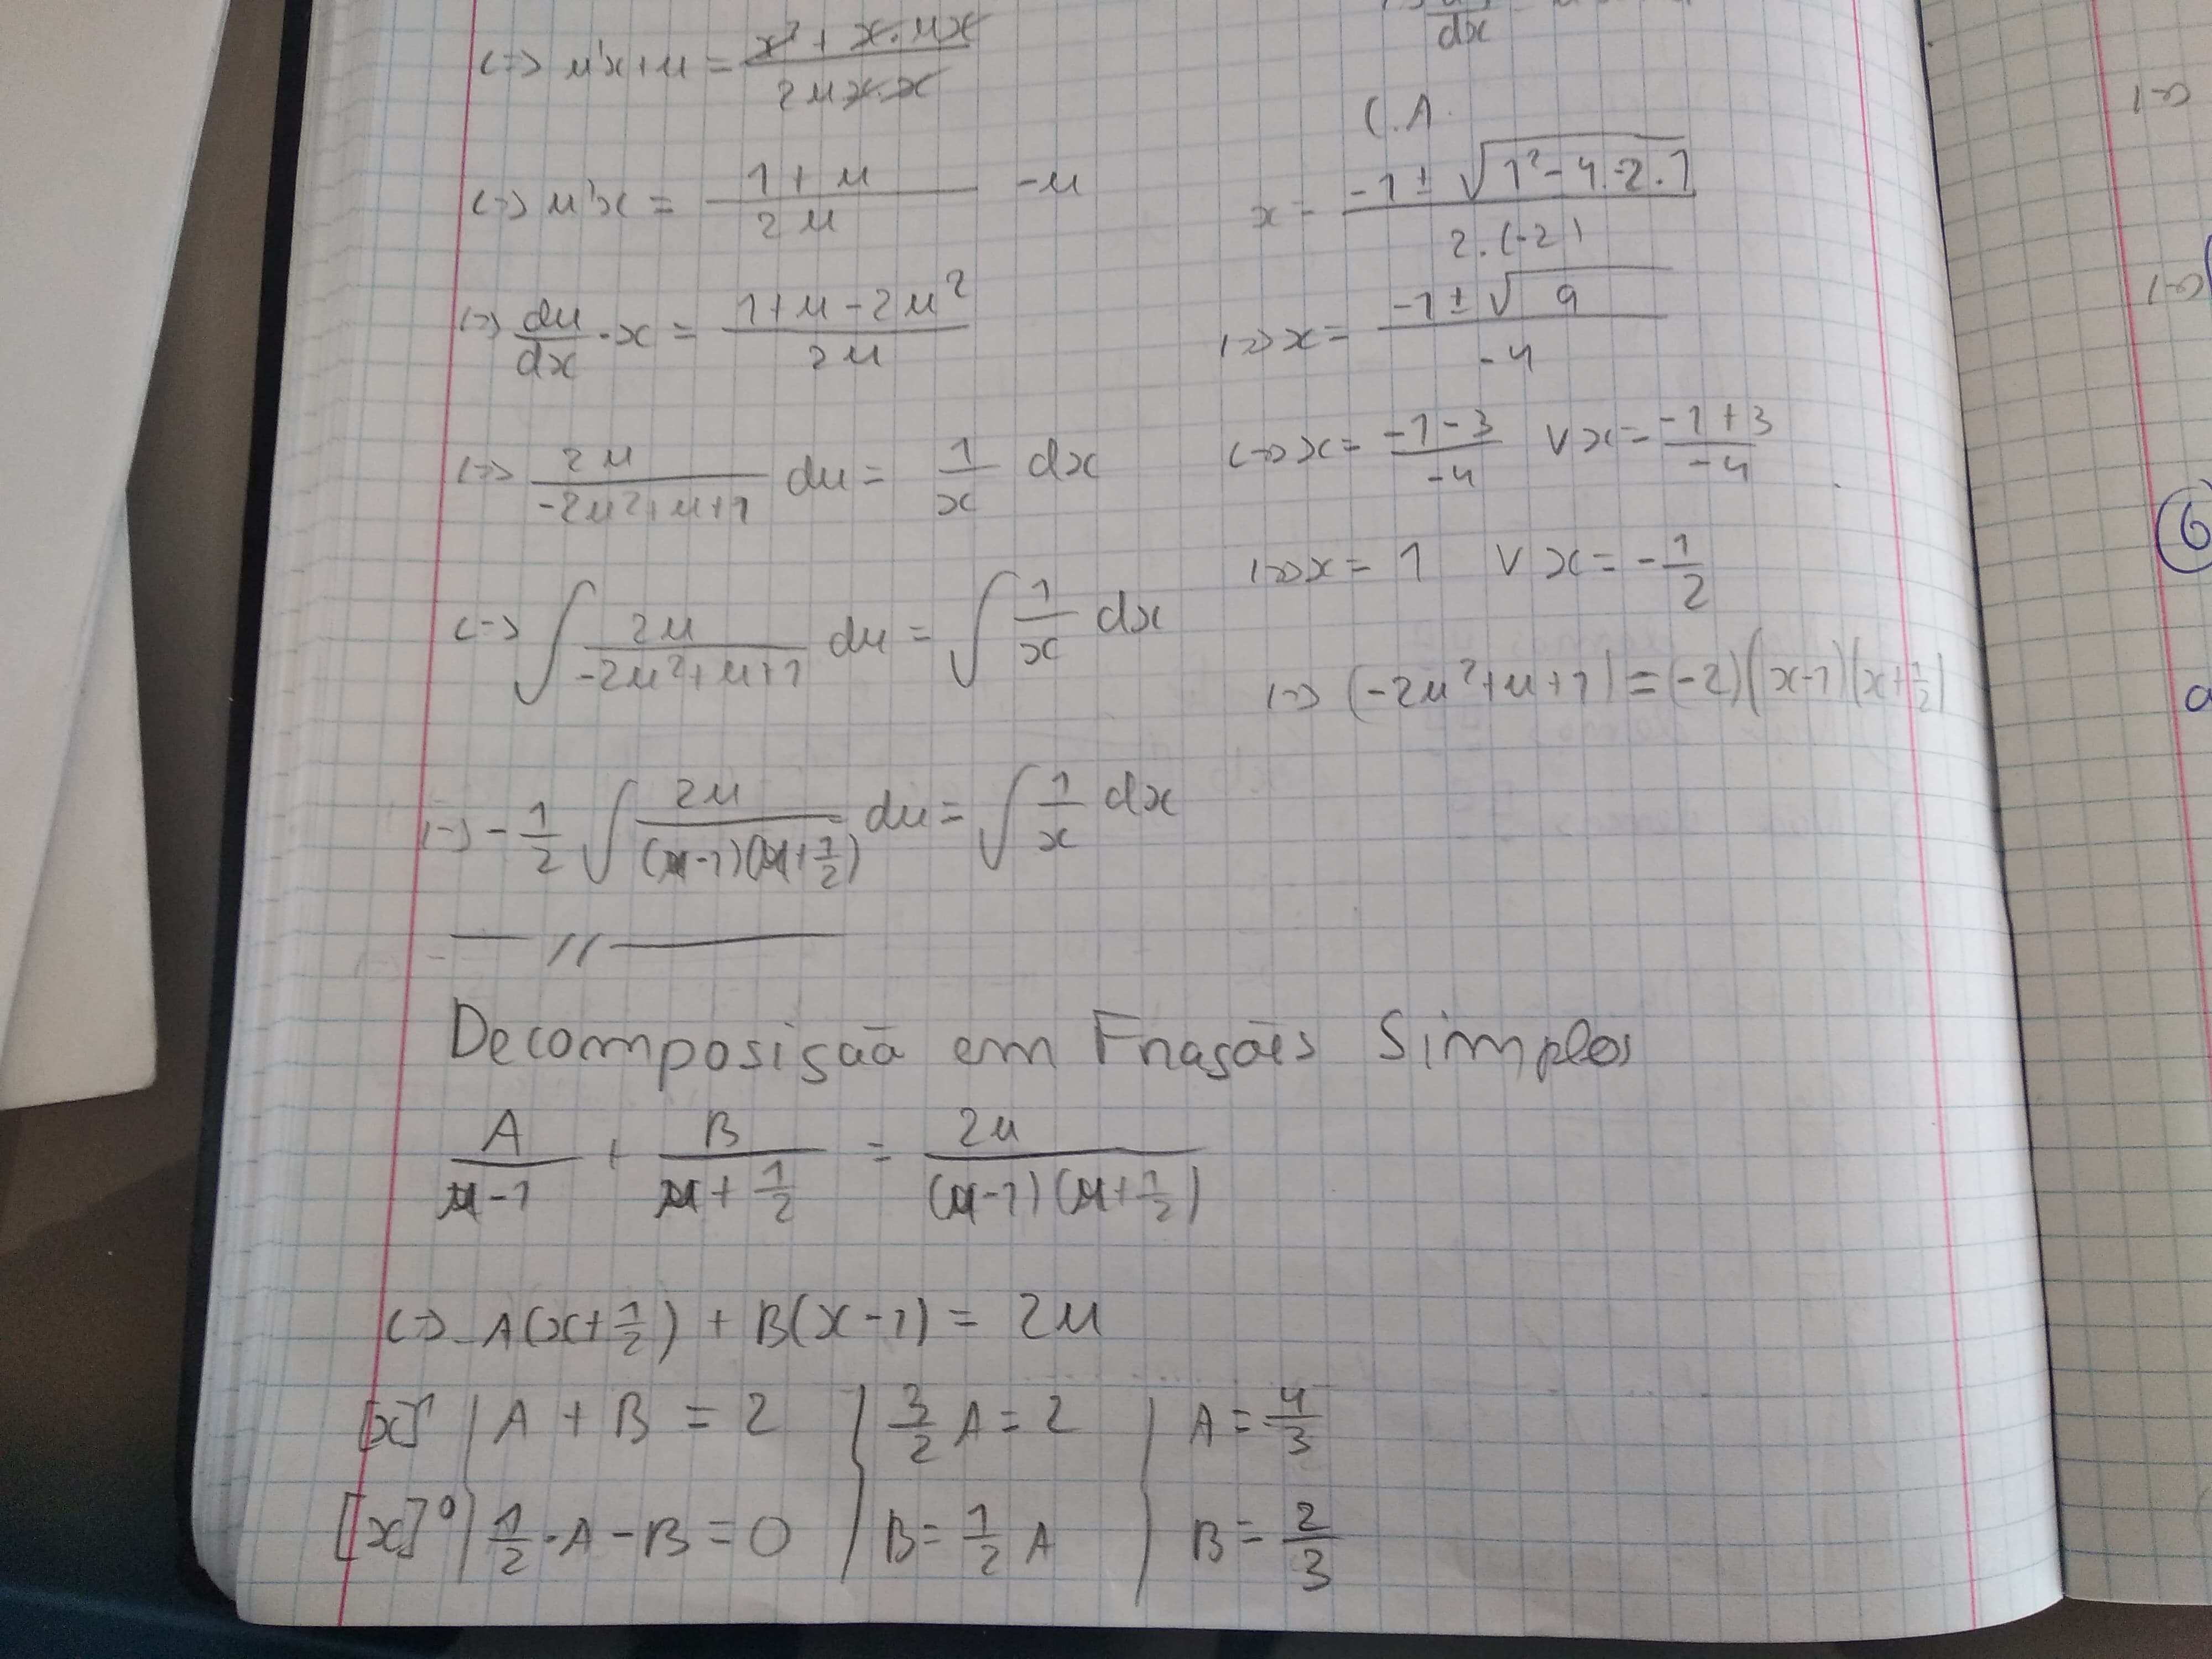 (=) u'x+u = (x² + x·ux)/(2ux·x)
(=) u'x = (1+u)/(2u) -u
(=) du/dx · x = (1+u-2u²)/(2u)
(=) 2u/(-2u²+u+1) du = 1/x dx
(=) ∫ 2u/(-2u²+u+1) du = ∫ 1/x dx
(=) -1/2 ∫ 2u/((u-1)(u+1/2)) du = ∫ 1/x dx
— // —
dx
C.A.
x = (-1 ± √(1²-4.-2.1))/(2.(-2))
(=) x = (-1 ± √9)/(-4)
(=) x = (-1-3)/(-4) ∨ x = (-1+3)/(-4)
(=) x = 1 ∨ x = -1/2
(=) (-2u²+u+1) = (-2)(x-1)(x+1/2)
Decomposição em Frações Simples
A/(u-1) + B/(u+1/2) = 2u/((u-1)(u+1/2))
(=) A(x+1/2) + B(x-1) = 2u
[x]¹ { A + B = 2 { 3/2 A = 2 { A = 4/3
[x]⁰ { 1/2·A - B = 0 { B = 1/2 A { B = 2/3
(=)
(=)
6
a